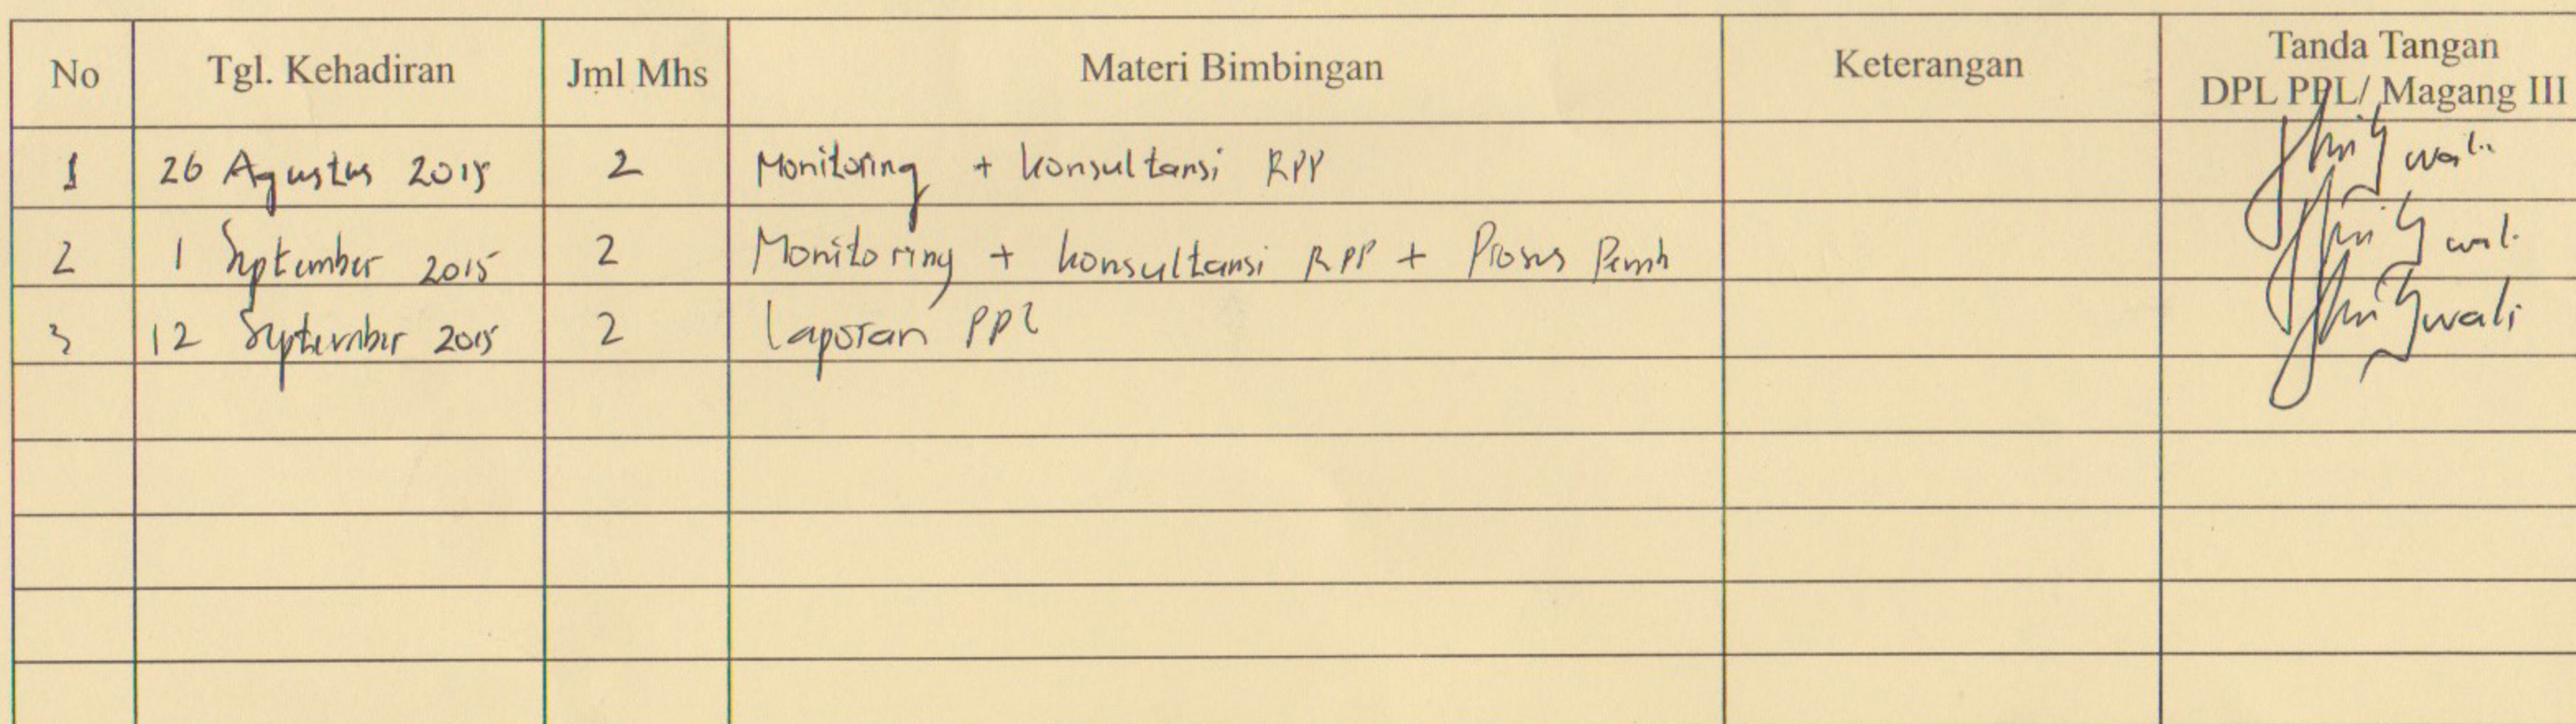 No Tgl. Kehadiran Jml Mhs Materi Bimbingan Keterangan Tanda Tangan
DPL PPL/ Magang III
1 26 Agustus 2015 2 Monitoring + konsultansi RPP
2 1 September 2015 2 Monitoring + konsultansi RPP + Proses
3 12 September 2015 2 Laporan PPL